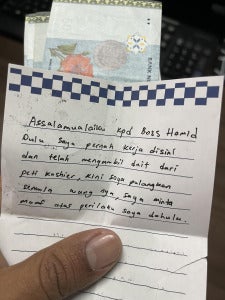 BANK NEG
Assalamualaiku kpd Boss Hamid
Dulu saya pernah kerja disini
dan telah mengambil duit dari
peti kashier, kini saya pulangkan
semula wang nya, saya minta
maaf atas perilaku saya dahulu.